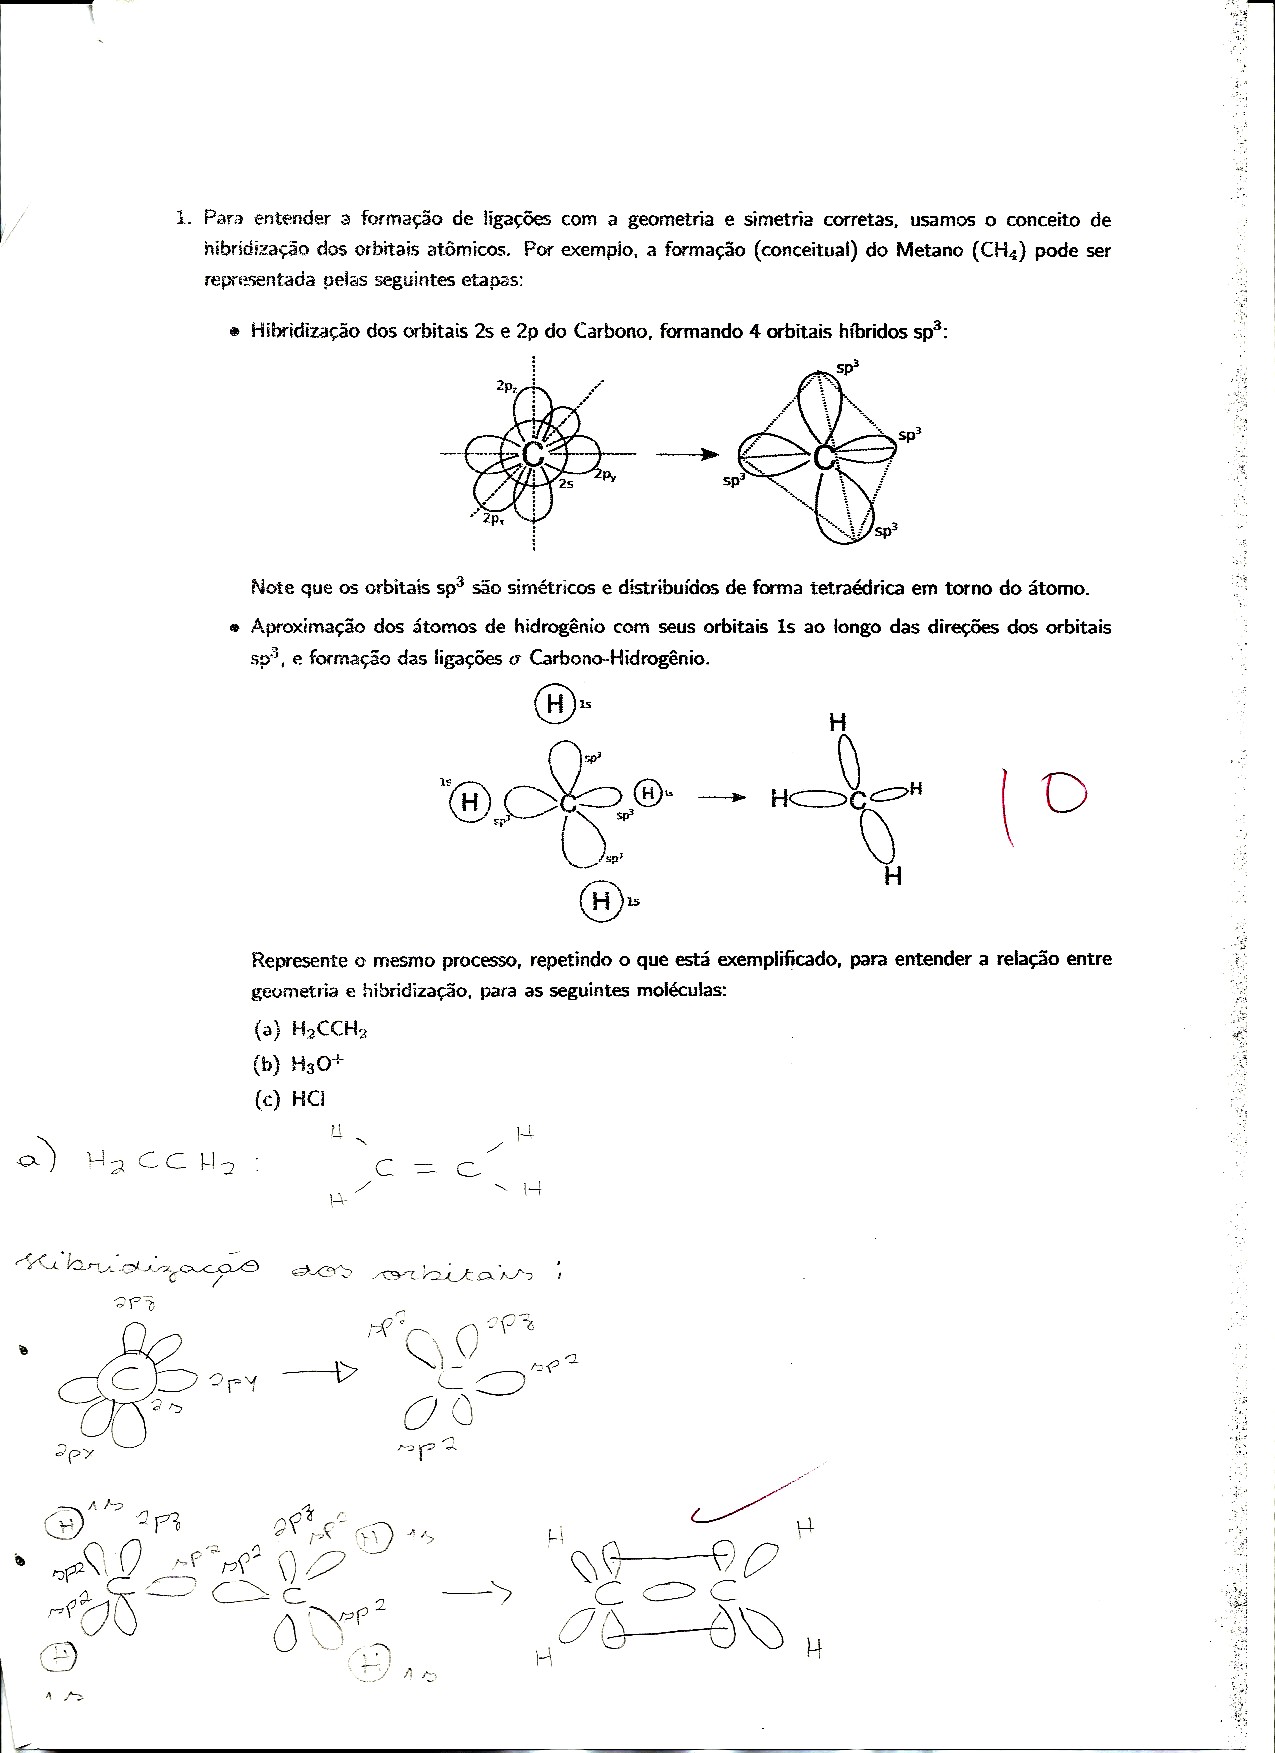 1. Para entender a formação de ligações com a geometria e simetria corretas, usamos o conceito de
hibridização dos orbitais atômicos. Por exemplo, a formação (conceitual) do Metano (CH₄) pode ser
representada pelas seguintes etapas:
• Hibridização dos orbitais 2s e 2p do Carbono, formando 4 orbitais híbridos sp³:
2p_z C 2s 2p_y 2p_x sp³ sp³ C sp³ sp³
Note que os orbitais sp³ são simétricos e distribuídos de forma tetraédrica em torno do átomo.
• Aproximação dos átomos de hidrogênio com seus orbitais 1s ao longo das direções dos orbitais
sp³, e formação das ligações σ Carbono-Hidrogênio.
H 1s H
1s H sp³ sp³ C sp³ H 1s H C H
sp³ H
H 1s
10
Represente o mesmo processo, repetindo o que está exemplificado, para entender a relação entre
geometria e hibridização, para as seguintes moléculas:
(a) H₂CCH₂
(b) H₃O⁺
(c) HCl
H H
a) H₂CCH₂ : C = C
H H
Hibridização dos orbitais :
2pz sp² 2pz
C 2py C sp²
2s
2px sp2
H 1s 2pz 2pz sp² H 1s H H
sp2 C sp² sp² C C C
sp² sp²
H H H H
1s 1s